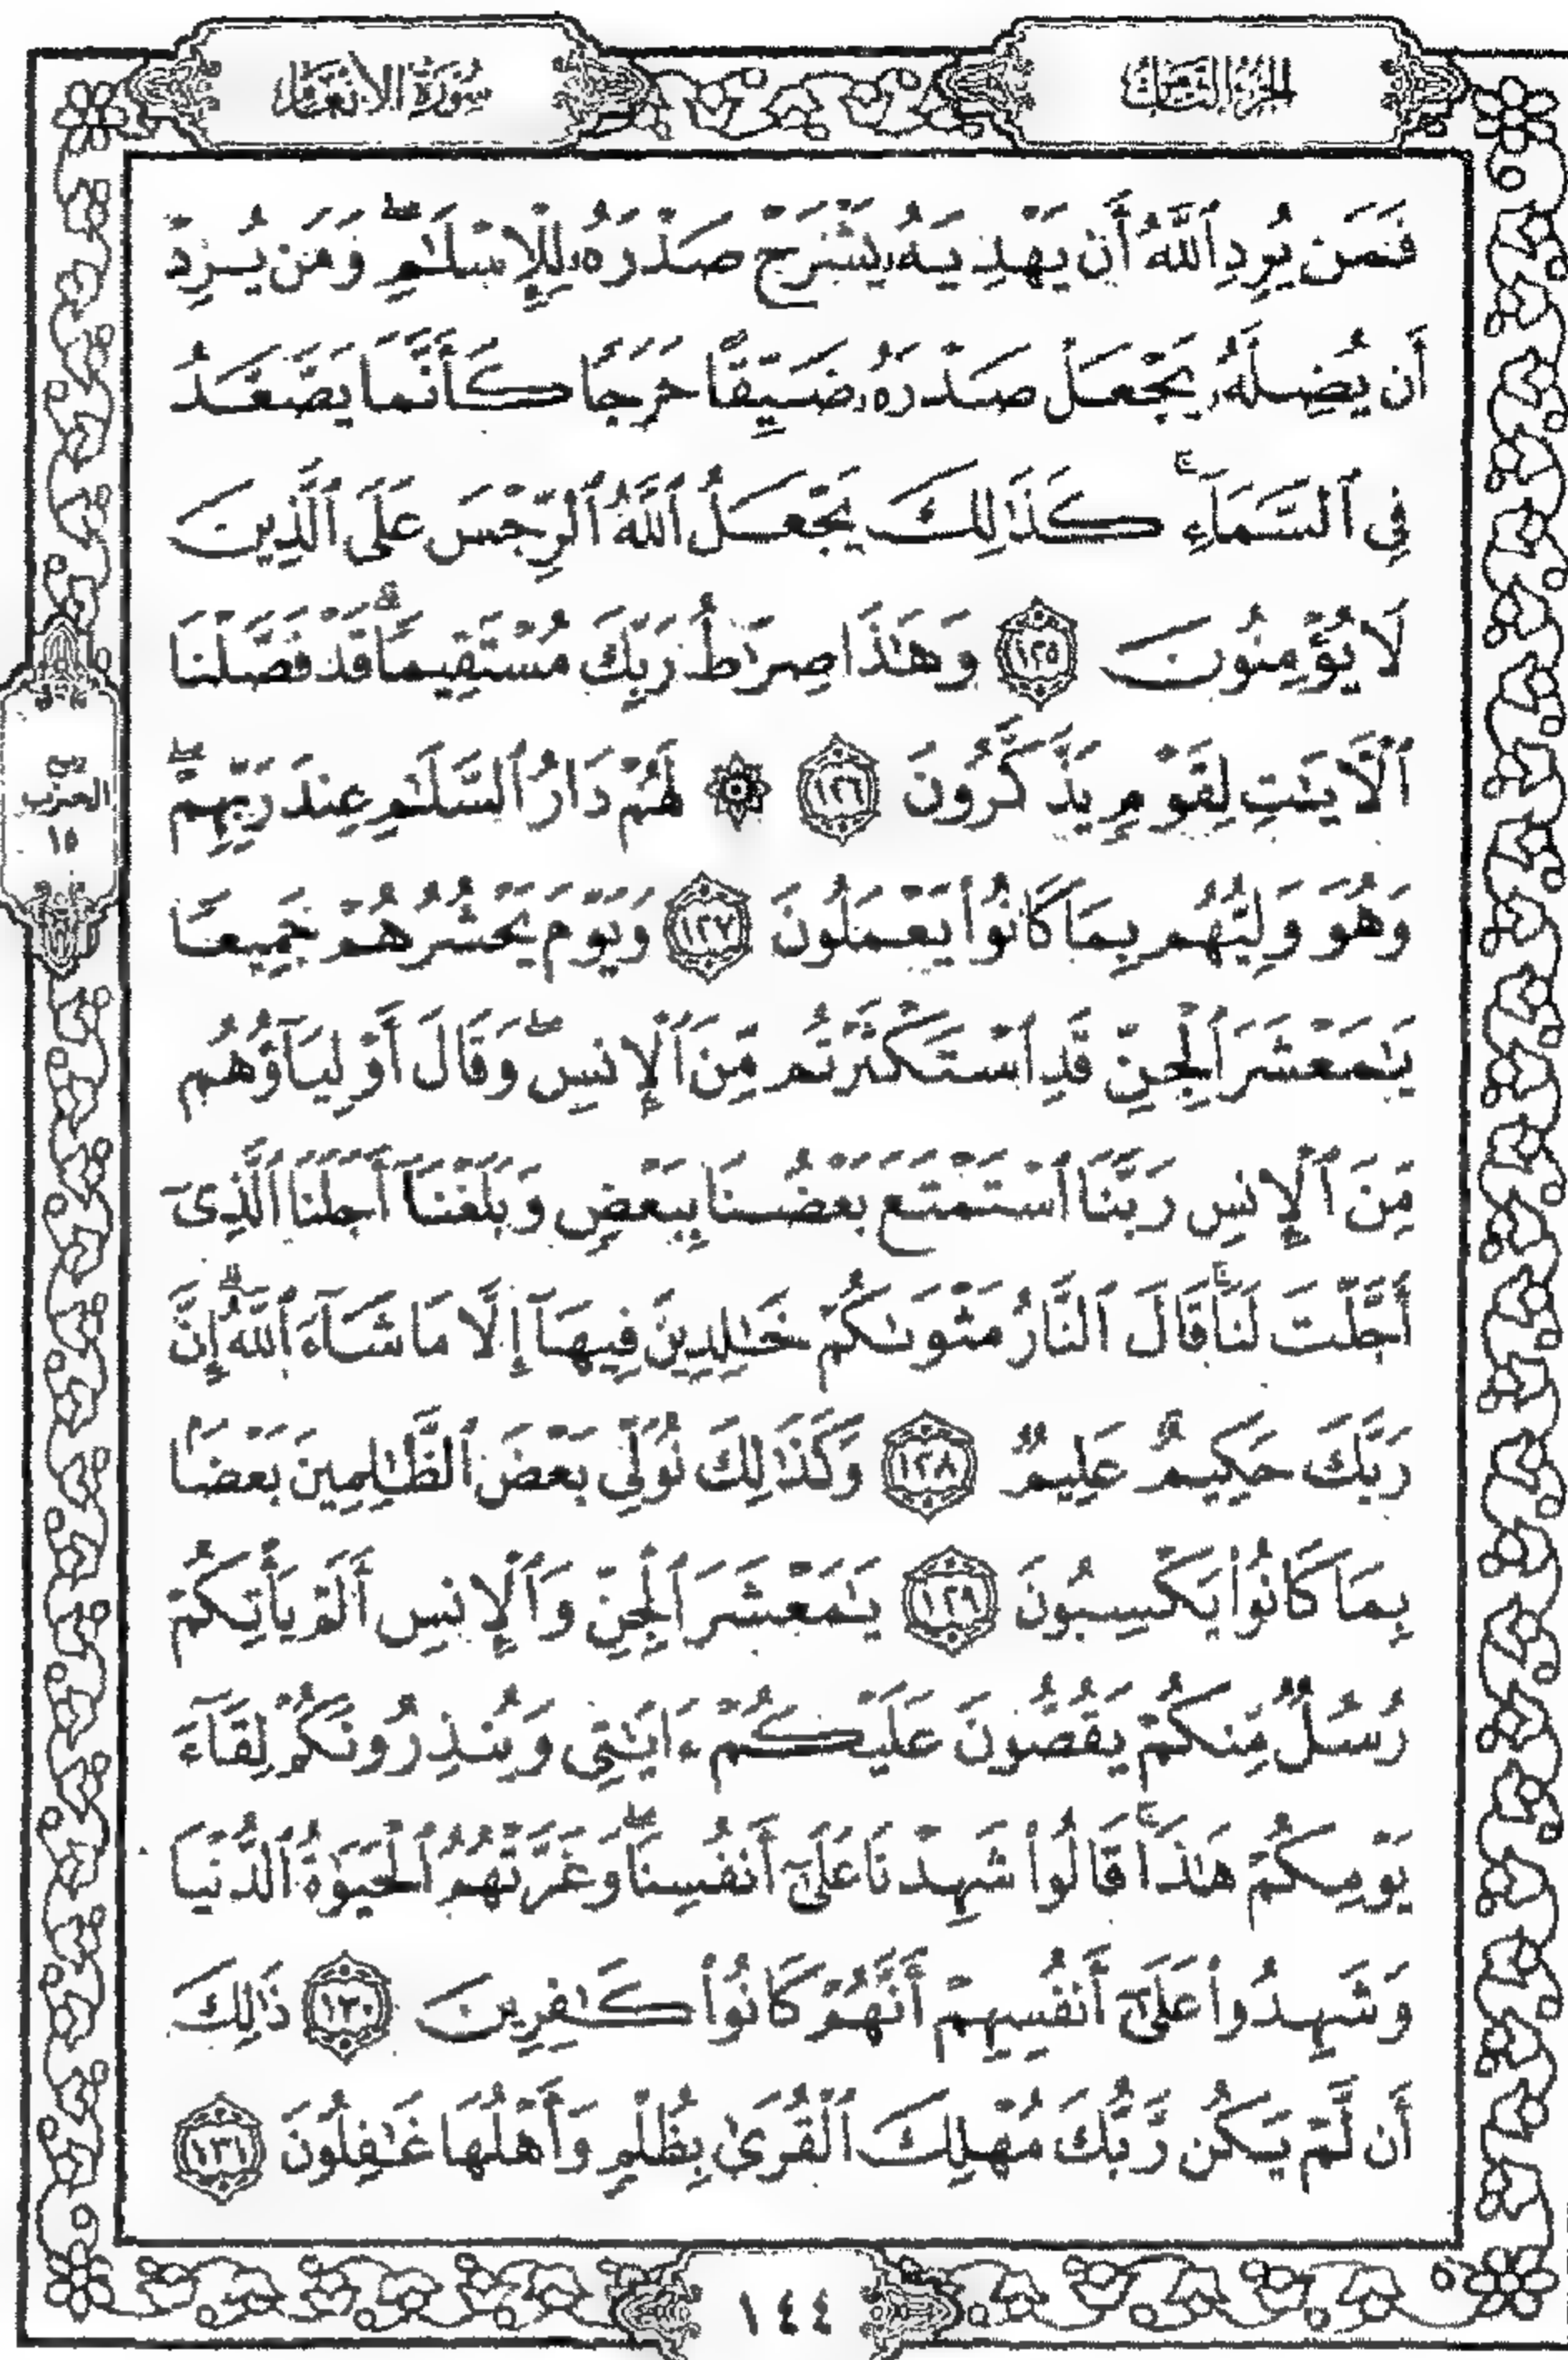 الجزء الثامن
سورة الأنعام
فَمَن يُرِدِ ٱللَّهُ أَن يَهْدِيَهُۥ يَشْرَحْ صَدْرَهُۥ لِلْإِسْلَٰمِ ۖ وَمَن يُرِدْ
أَن يُضِلَّهُۥ يَجْعَلْ صَدْرَهُۥ ضَيِّقًا حَرَجًا كَأَنَّمَا يَصَّعَّدُ
فِي ٱلسَّمَآءِ ۚ كَذَٰلِكَ يَجْعَلُ ٱللَّهُ ٱلرِّجْسَ عَلَى ٱلَّذِينَ
لَا يُؤْمِنُونَ ١٢٥ وَهَٰذَا صِرَٰطُ رَبِّكَ مُسْتَقِيمًا ۗ قَدْ فَصَّلْنَا
ٱلْآيَٰتِ لِقَوْمٍ يَذَّكَّرُونَ ١٢٦ ۞ لَهُمْ دَارُ ٱلسَّلَٰمِ عِندَ رَبِّهِمْ ۖ
وَهُوَ وَلِيُّهُم بِمَا كَانُوا۟ يَعْمَلُونَ ١٢٧ وَيَوْمَ يَحْشُرُهُمْ جَمِيعًا
يَٰمَعْشَرَ ٱلْجِنِّ قَدِ ٱسْتَكْثَرْتُم مِّنَ ٱلْإِنسِ ۖ وَقَالَ أَوْلِيَآؤُهُم
مِّنَ ٱلْإِنسِ رَبَّنَا ٱسْتَمْتَعَ بَعْضُنَا بِبَعْضٍ وَبَلَغْنَآ أَجَلَنَا ٱلَّذِىٓ
أَجَّلْتَ لَنَا ۚ قَالَ ٱلنَّارُ مَثْوَىٰكُمْ خَٰلِدِينَ فِيهَآ إِلَّا مَا شَآءَ ٱللَّهُ ۗ إِنَّ
رَبَّكَ حَكِيمٌ عَلِيمٌ ١٢٨ وَكَذَٰلِكَ نُوَلِّى بَعْضَ ٱلظَّٰلِمِينَ بَعْضًۢا
بِمَا كَانُوا۟ يَكْسِبُونَ ١٢٩ يَٰمَعْشَرَ ٱلْجِنِّ وَٱلْإِنسِ أَلَمْ يَأْتِكُمْ
رُسُلٌ مِّنكُمْ يَقُصُّونَ عَلَيْكُمْ ءَايَٰتِى وَيُنذِرُونَكُمْ لِقَآءَ
يَوْمِكُمْ هَٰذَا ۚ قَالُوا۟ شَهِدْنَا عَلَىٰٓ أَنفُسِنَا ۖ وَغَرَّتْهُمُ ٱلْحَيَوٰةُ ٱلدُّنْيَا
وَشَهِدُوا۟ عَلَىٰٓ أَنفُسِهِمْ أَنَّهُمْ كَانُوا۟ كَٰفِرِينَ ١٣٠ ذَٰلِكَ
أَن لَّمْ يَكُن رَّبُّكَ مُهْلِكَ ٱلْقُرَىٰ بِظُلْمٍ وَأَهْلُهَا غَٰفِلُونَ ١٣١
ربع
الحزب
١٥
١٤٤